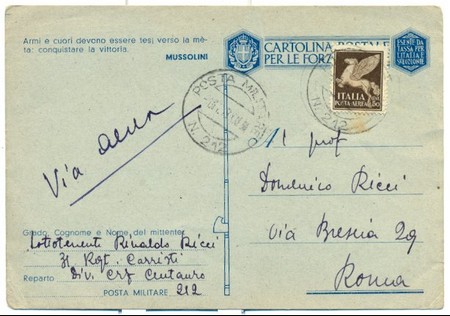 Armi e cuori devono essere tesi verso la mè-
ta: conquistare la vittoria.
MUSSOLINI
CARTOLINA POSTALE
PER LE FORZE
ESENTE DA
TASSA PER
L'ITALIA E
ITALIA
POSTA AEREA
POSTA MILITARE
N. 212
Via aerea
Al prof
Domenico Ricci
Via Brescia 29
Roma
Grado, Cognome e Nome del mittente
Sottotenente Rinaldo Ricci
31 Rgt. Carristi
Reparto Div. Crz Centauro
POSTA MILITARE 212